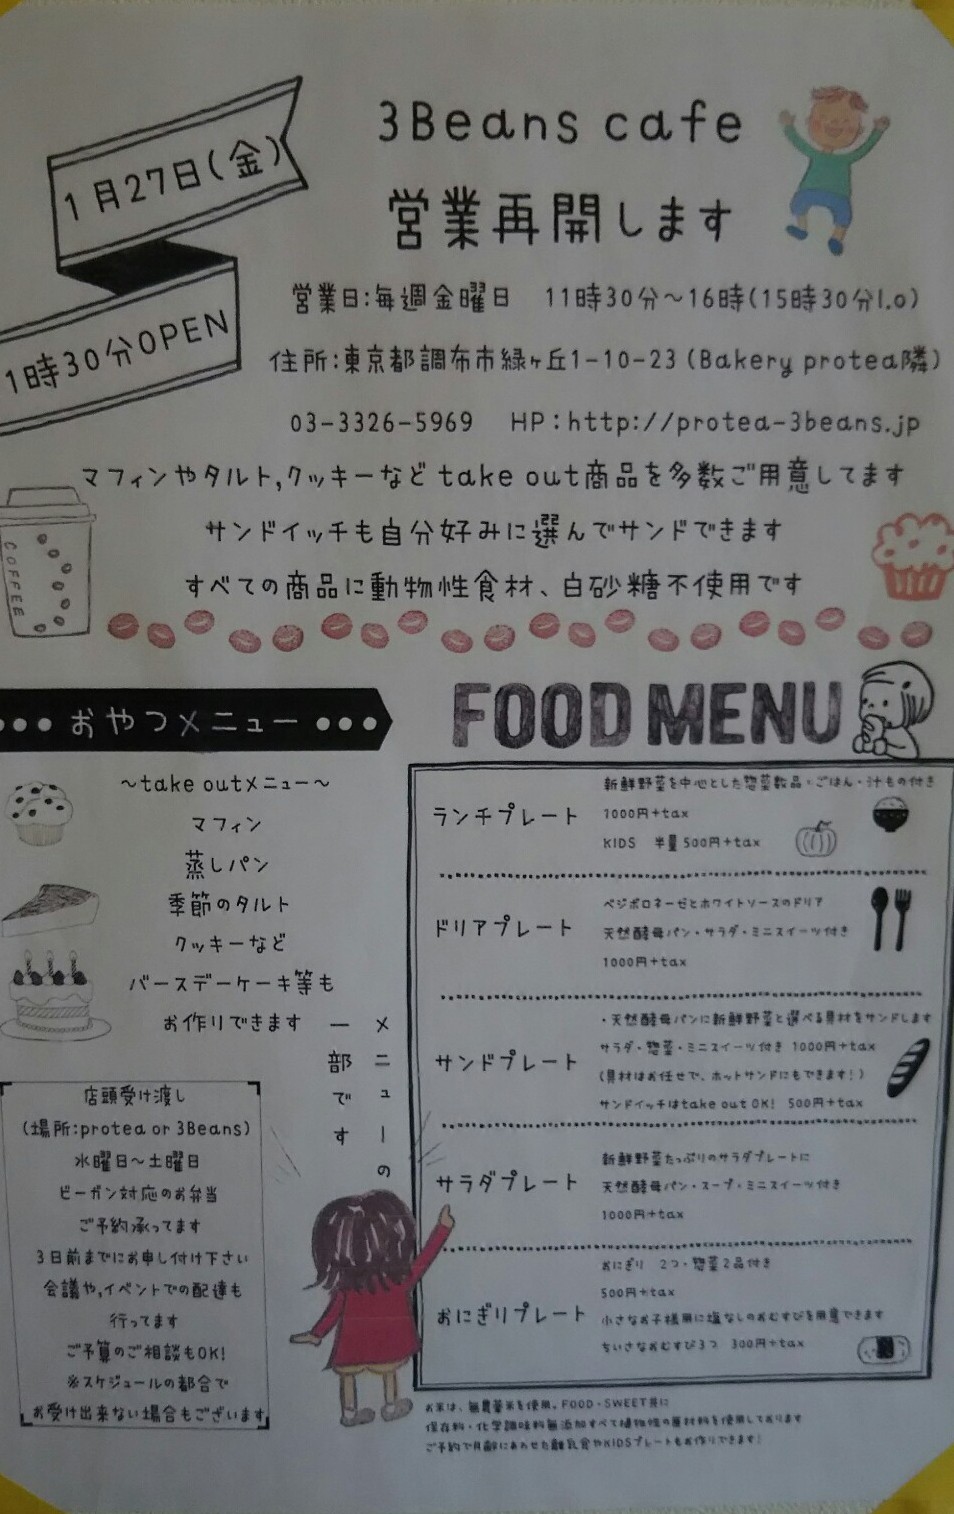 1月27日(金)
1時30分OPEN
3Beans cafe
営業再開します
営業日:毎週金曜日 11時30分～16時(15時30分l.o)
住所:東京都調布市緑ヶ丘1-10-23(Bakery protea隣)
03-3326-5969 HP:http://protea-3beans.jp
マフィンやタルト,クッキーなどtake out商品を多数ご用意してます
サンドイッチも自分好みに選んでサンドできます
すべての商品に動物性食材、白砂糖不使用です
COFFEE
おやつメニュー
～take outメニュー～
マフィン
蒸しパン
季節のタルト
クッキーなど
バースデーケーキ等も
お作りできます
メニューの
一部です
店頭受け渡し
(場所:protea or 3Beans)
水曜日～土曜日
ビーガン対応のお弁当
ご予約承ってます
3日前までにお申し付け下さい
会議や,イベントでの配達も
行ってます
ご予算のご相談もOK!
※スケジュールの都合で
お受け出来ない場合もございます
FOOD MENU
ランチプレート
新鮮野菜を中心とした惣菜数品・ごはん・汁もの付き
1000円+tax
KIDS 半量500円+tax
ドリアプレート
ベジボロネーゼとホワイトソースのドリア
天然酵母パン・サラダ・ミニスイーツ付き
1000円+tax
サンドプレート
・天然酵母パンに新鮮野菜と選べる具材をサンドします
サラダ・惣菜・ミニスイーツ付き 1000円+tax
(具材はお任せで、ホットサンドにもできます!)
サンドイッチはtake out OK! 500円+tax
サラダプレート
新鮮野菜たっぷりのサラダプレートに
天然酵母パン・スープ・ミニスイーツ付き
1000円+tax
おにぎりプレート
おにぎり 2つ・惣菜2品付き
500円+tax
小さなお子様用に塩なしのおむすびを用意できます
ちいさなおむすび3つ 300円+tax
お米は、無農薬米を使用。FOOD・SWEET共に
保存料・化学調味料無添加すべて植物性の原材料を使用しております
ご予約で月齢にあわせた離乳食やKIDSプレートもお作りできます!